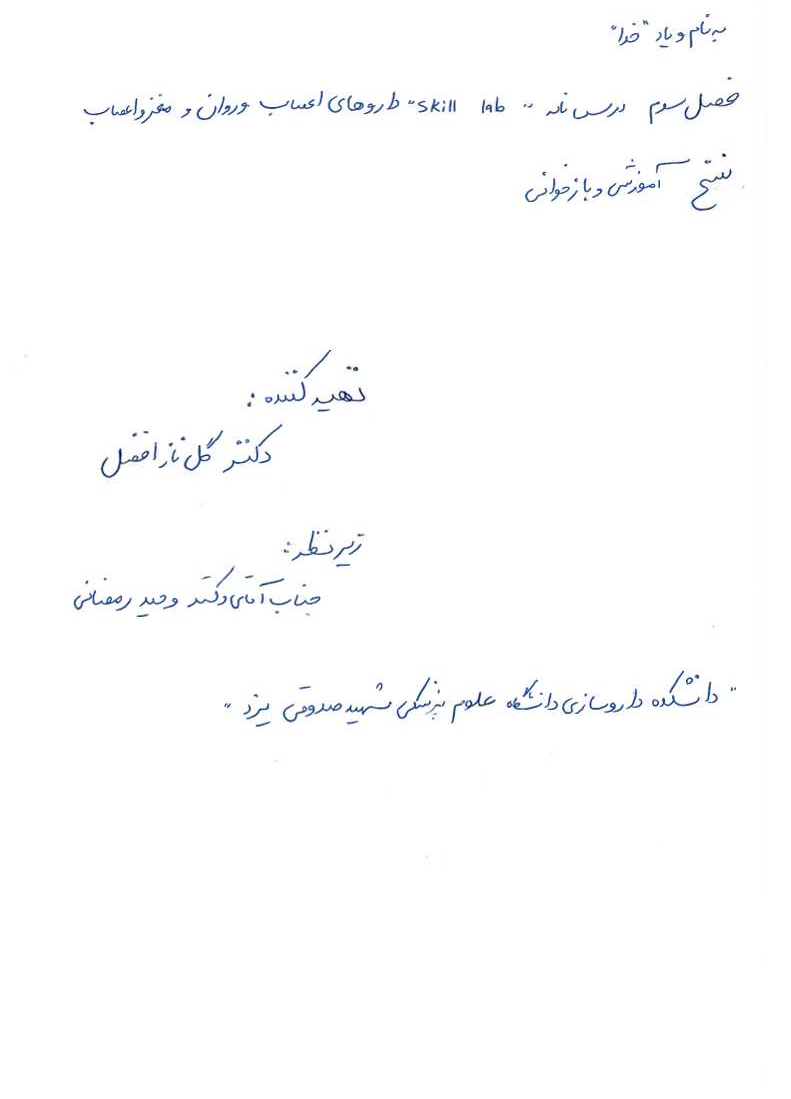 به نام و یاد "خدا"
فصل سوم درس نامه "skill lab" داروهای اعصاب و روان و مغز و اعصاب
آموزشی و بازخوانی
تهیه کننده:
دکتر گل ناز افضل
زیر نظر:
جناب آقای دکتر وحید رمضانی
"دانشکده داروسازی دانشگاه علوم پزشکی شهید صدوقی یزد"